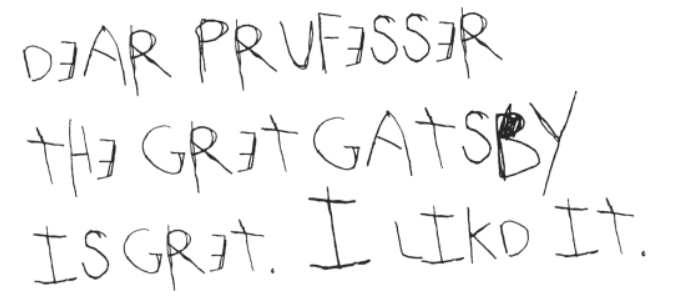 DƎAR PRUFƎSSƎR
THƎ GRƎT GATSBY
IS GRƎT. I LIKD IT.